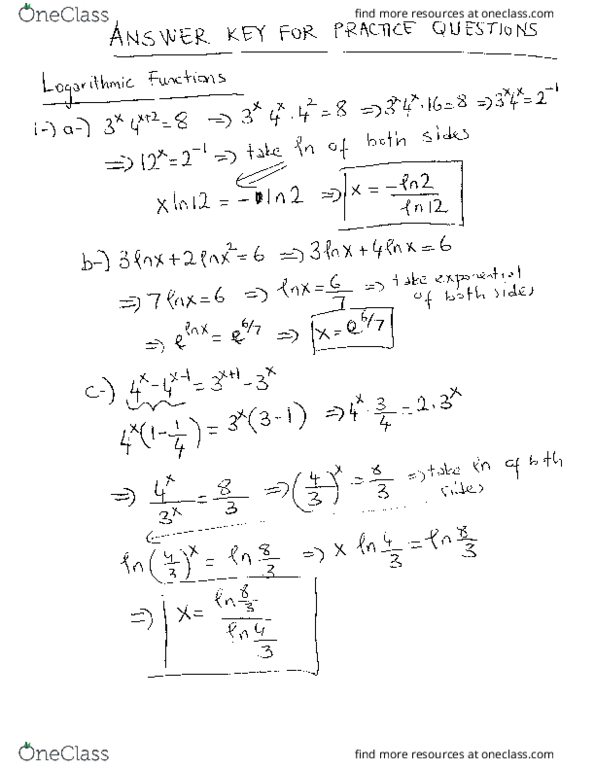 OneClass
find more resources at oneclass.com
ANSWER KEY FOR PRACTICE QUESTIONS
Logarithmic Functions
i-) a-) 3^x 4^{x+2} = 8 ⇒ 3^x 4^x · 4^2 = 8 ⇒ 3^x 4^x · 16 = 8 ⇒ 3^x 4^x = 2^{-1}
⇒ 12^x = 2^{-1} ⇒ take ln of both sides
x ln 12 = - ln 2 ⇒ x = -ln 2 / ln 12
b-) 3 ln x + 2 ln x^2 = 6 ⇒ 3 ln x + 4 ln x = 6
⇒ 7 ln x = 6 ⇒ ln x = 6/7 ⇒ take exponential of both sides
⇒ e^{ln x} = e^{6/7} ⇒ x = e^{6/7}
c-) 4^x - 4^{x-1} = 3^{x+1} - 3^x
4^x (1 - 1/4) = 3^x (3 - 1) ⇒ 4^x · 3/4 = 2 · 3^x
⇒ 4^x / 3^x = 8/3 ⇒ (4/3)^x = 8/3 ⇒ take ln of both sides
ln (4/3)^x = ln 8/3 ⇒ x ln 4/3 = ln 8/3
⇒ x = ln 8/3 / ln 4/3
OneClass
find more resources at oneclass.com